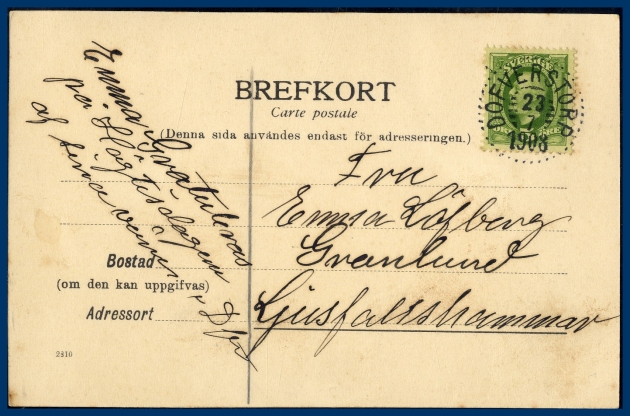 BREFKORT
Carte postale
(Denna sida användes endast för adresseringen.)
SVERIGE
DOFVERSTORP
23
1908
Emma Gratuleras
på Högtidsdagen
af
Fru
Emma Löfberg
Granlund
Ljusfallshammar
Bostad
(om den kan uppgifvas)
Adressort
2310